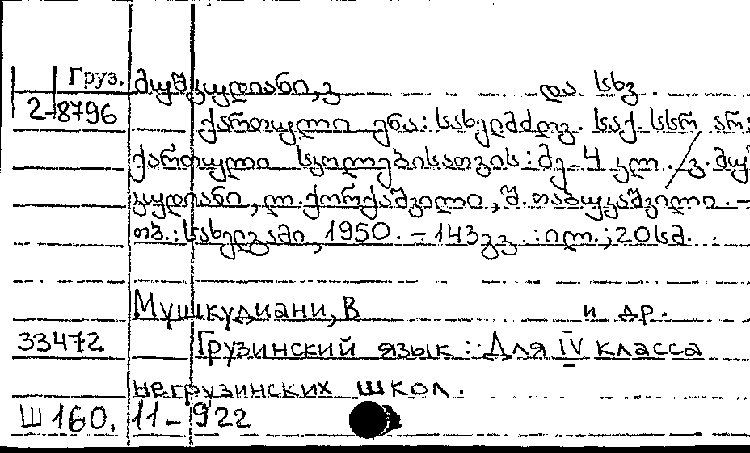 Груз. მუშკუდიანი, ვ და სხვ.
2-8796 ქართული ენა: სახელმძღვ. საქ. სსრ არა
ქართული სკოლებისათვის: მე-4 კლ. / ვ. მუშ
კუდიანი, ლ. ქორქაშვილი, შ.
თბ.: სახელგამი, 1950. – 143გვ. : ილ.; 20სმ.
Мушкудиани, В и др.
33472 Грузинский язык: Для IV класса
негрузинских школ.
Ш160. 11-922